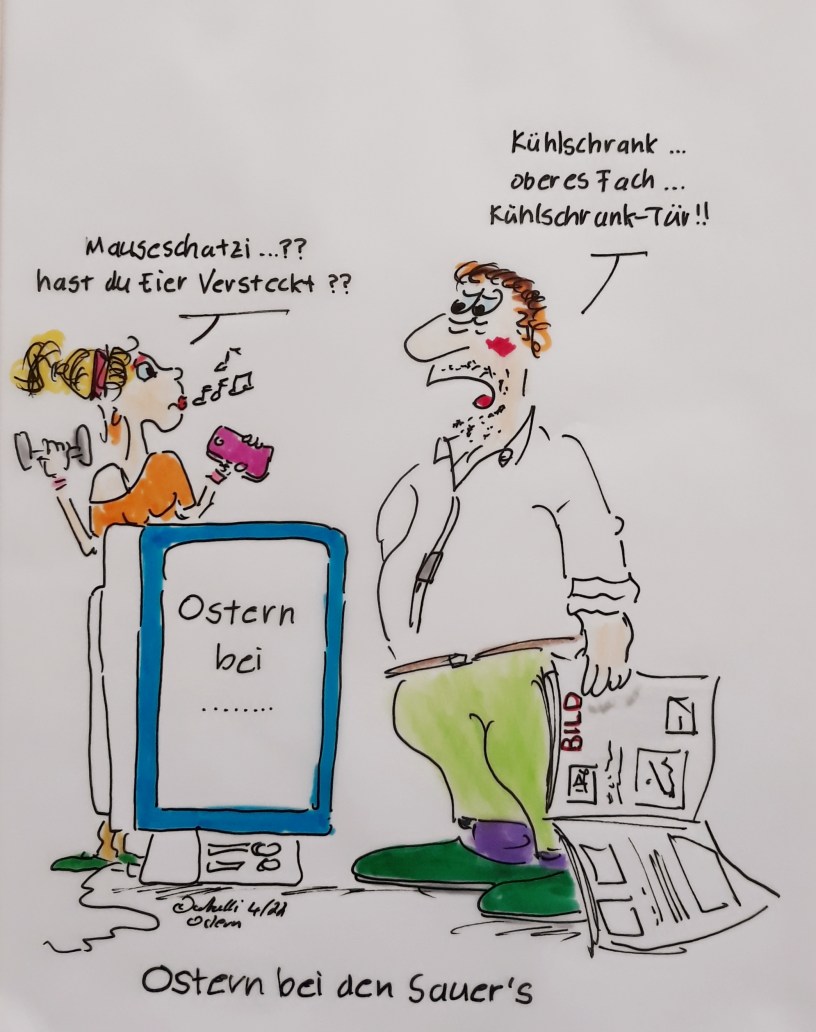 Kühlschrank ...
oberes Fach ...
Kühlschrank-Tür!!
Mauseschatzi ...??
hast du Eier Versteckt ??
Ostern
bei
.........
BILD
4/21
Ostern
Ostern bei den Sauer's